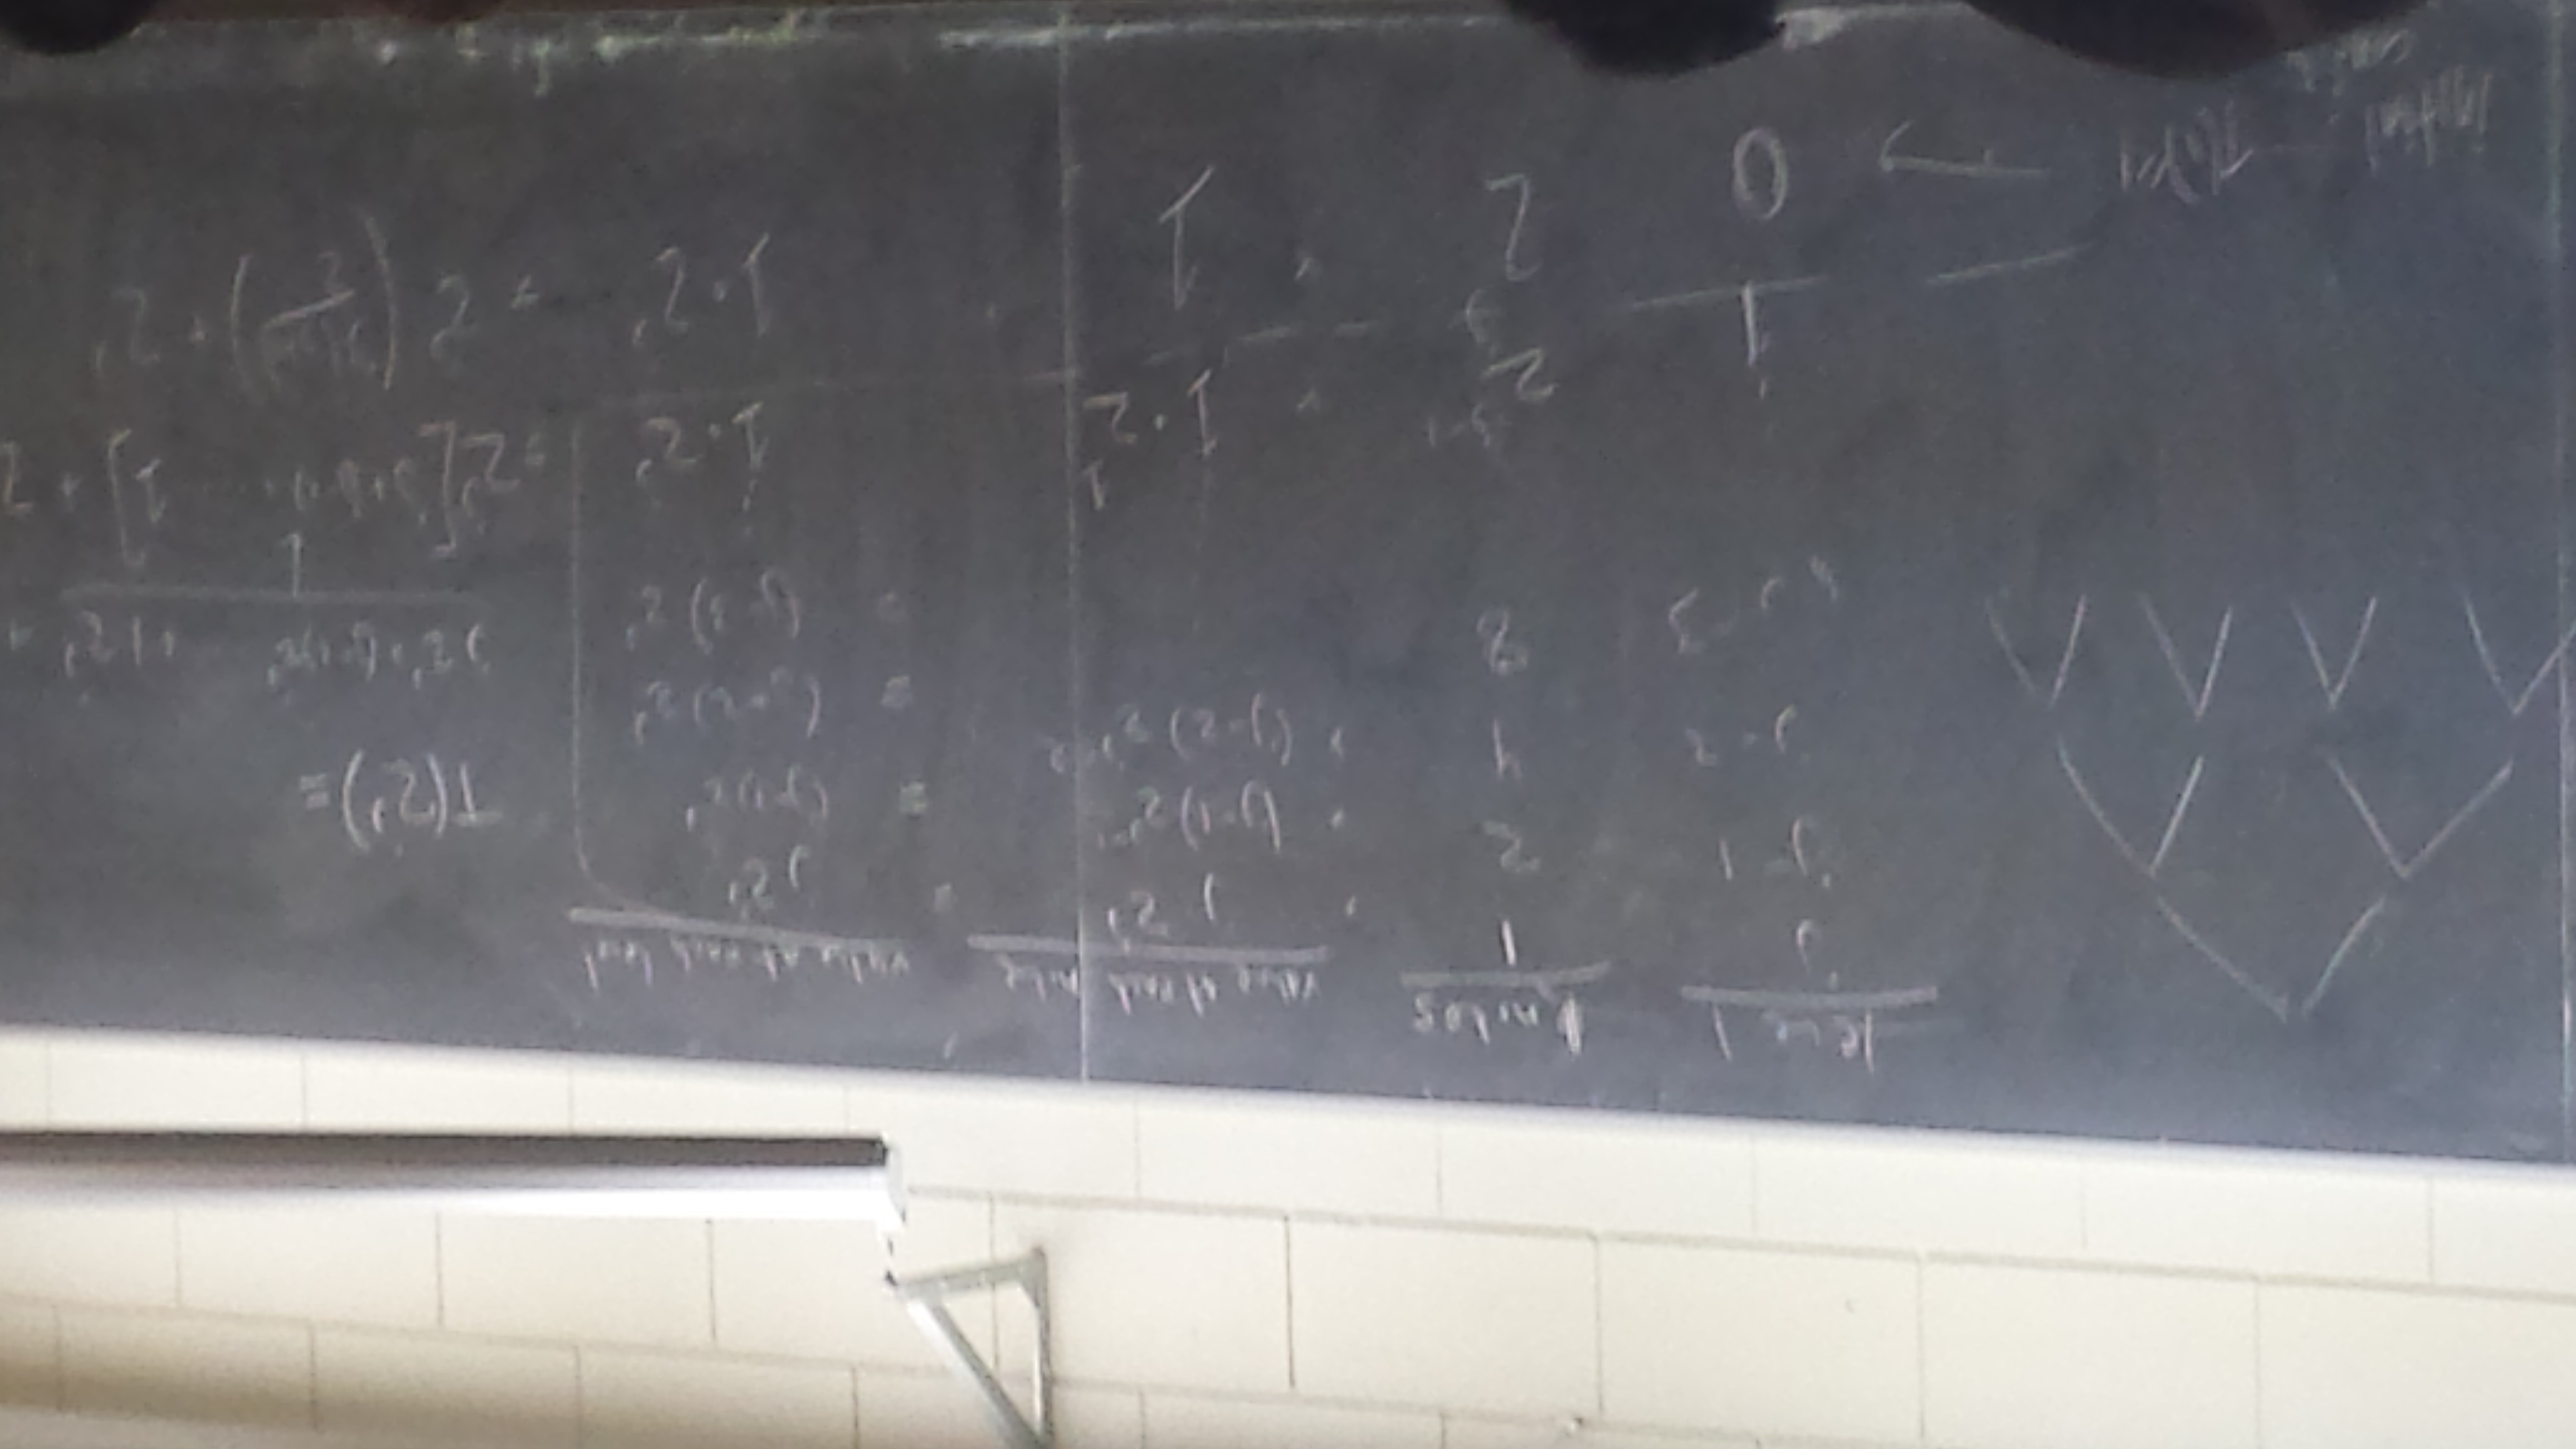 level # nodes value at each node value at each level
j 1 · j 2^j = j 2^j
j-1 2 · (j-1) 2^{j-1} = (j-1) 2^j
j-2 4 · (j-2) 2^{j-2} = (j-2) 2^j
j-3 8 = (j-3) 2^j
1 2^{j-1} · 1·2^1 1·2^j
0 2^j · 1 1·2^j
initial T(1)=1 →
T(2^j) =
j2^j + (j-1)2^j +1 2^j +
= 2^j [j+(j-1)+ ... 1] + 2